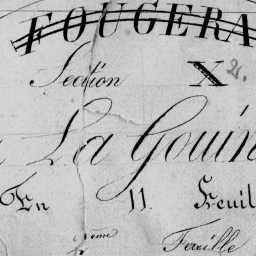 FOUGERA
Section X 2e.
La Gouin
En 11. Feuil
2eme Feuille